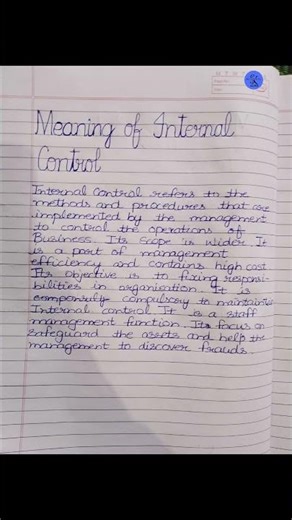 Meaning of Internal
Control
Internal Control refers to the
methods and procedures that are
implemented by the management
to control the operations of
Business. Its scope is wider. It
is a part of management
efficiency and contains high cost.
Its objective is to fixing responsi-
bilities in organisation. It is
compulsory to maintain
Internal control. It is a staff
management function. Its focus on
safeguard the assets and help the
management to discover frauds.